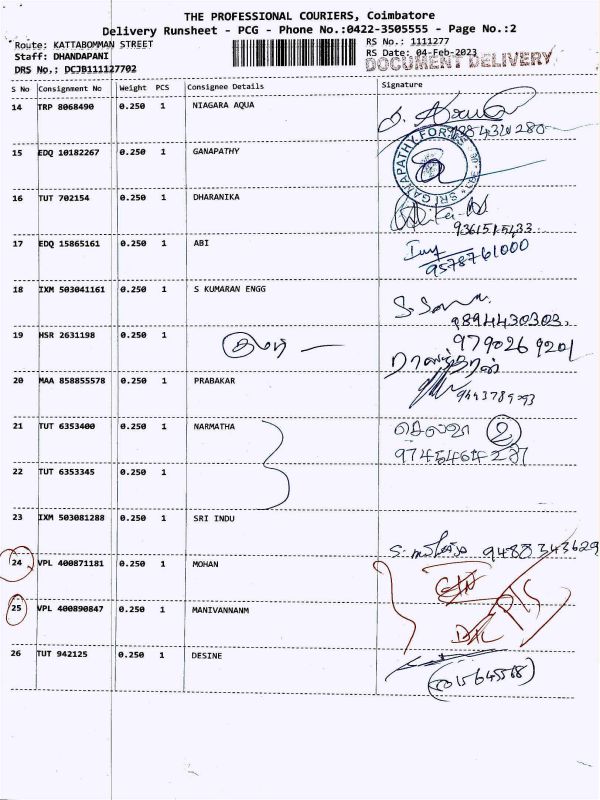 THE PROFESSIONAL COURIERS, Coimbatore
Delivery Runsheet - PCG - Phone No.:0422-3505555 - Page No.:2
Route: KATTABOMMAN STREET
Staff: DHANDAPANI
DRS No.: DCJB111127702
RS No.: 1111277
RS Date: 04-Feb-2023
DOCUMENT DELIVERY
S No Consignment No Weight PCS Consignee Details Signature
14 TRP 8068490 0.250 1 NIAGARA AQUA
15 EDQ 10182267 0.250 1 GANAPATHY
16 TUT 702154 0.250 1 DHARANIKA
9361515433
17 EDQ 15865161 0.250 1 ABI
9578761000
18 IXM 503041161 0.250 1 S KUMARAN ENGG
9894430303
19 HSR 2631198 0.250 1
9790269201
20 MAA 858855578 0.250 1 PRABAKAR
21 TUT 6353400 0.250 1 NARMATHA
22 TUT 6353345 0.250 1
23 IXM 503081288 0.250 1 SRI INDU
9488343629
24 VPL 400871181 0.250 1 MOHAN
25 VPL 400890847 0.250 1 MANIVANNANM
DAC
26 TUT 942125 0.250 1 DESINE